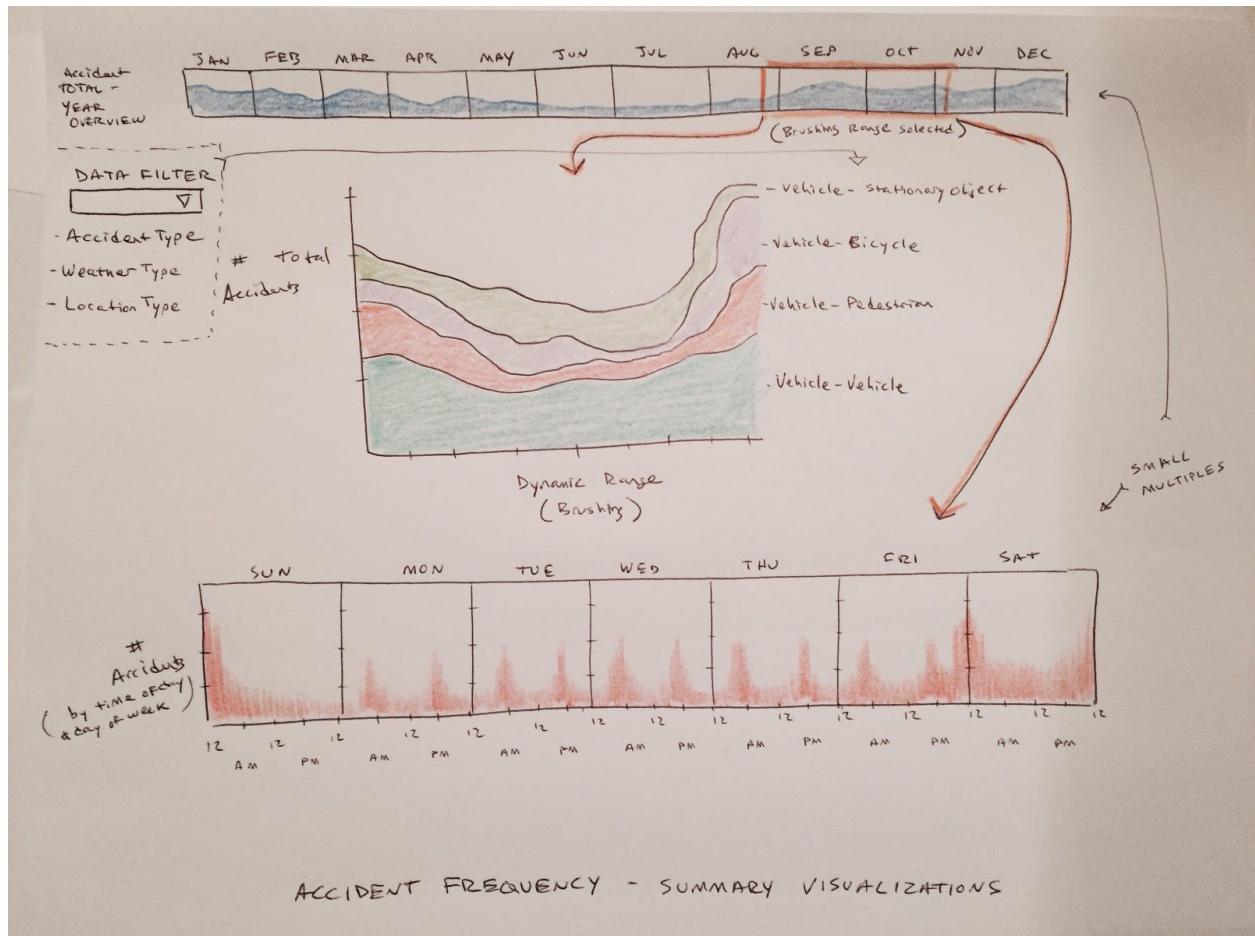 JAN FEB MAR APR MAY JUN JUL AUG SEP OCT NOV DEC
Accident
TOTAL -
YEAR
OVERVIEW
(Brushing Range Selected)
DATA FILTER
- Accident Type
- Weather Type
- Location Type
# Total
Accidents
- Vehicle - Stationary Object
- Vehicle - Bicycle
- Vehicle - Pedestrian
- Vehicle - Vehicle
Dynamic Range
(Brushing)
SMALL
MULTIPLES
SUN MON TUE WED THU FRI SAT
#
Accidents
(by time of day
& day of week)
12 12 12 12 12 12 12 12 12 12 12 12 12 12 12
AM PM AM PM AM PM AM PM AM PM AM PM AM PM
ACCIDENT FREQUENCY - SUMMARY VISUALIZATIONS